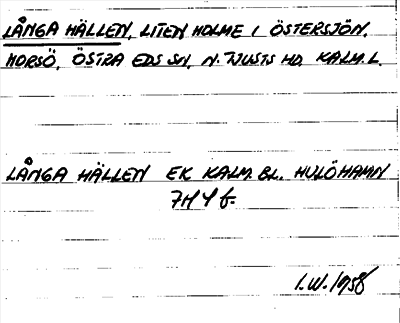 LÅNGA HÄLLEN, LITEN HOLME I ÖSTERSJÖN.
HORSÖ, ÖSTRA EDS SN, N. TJUSTS HD. KALM. L.
LÅNGA HÄLLEN EK KALM. BL. HULÖHAMN
7H 4 f.
I.W. 1958